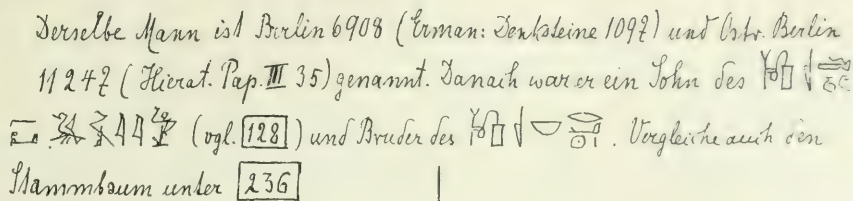 Derselbe Mann ist Berlin 6908 (Erman: Denksteine 1097) und Ostr. Berlin
11247 (Hierat. Pap. III 35) genannt. Danach war er ein Sohn des
(vgl. 128) und Bruder des . Vergleiche auch den
Stammbaum unter 236